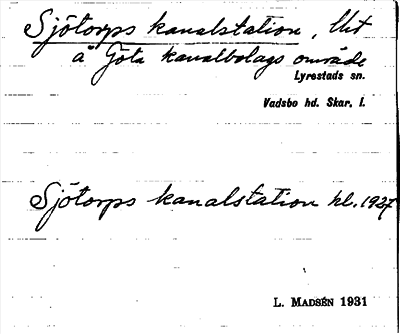 Sjötorps kanalstation, Utt
å Göta kanalbolags område
Lyrestads sn.
Vadsbo hd. Skar. l.
Sjötorps kanalstation kl. 1927
L. MADSÉN 1931